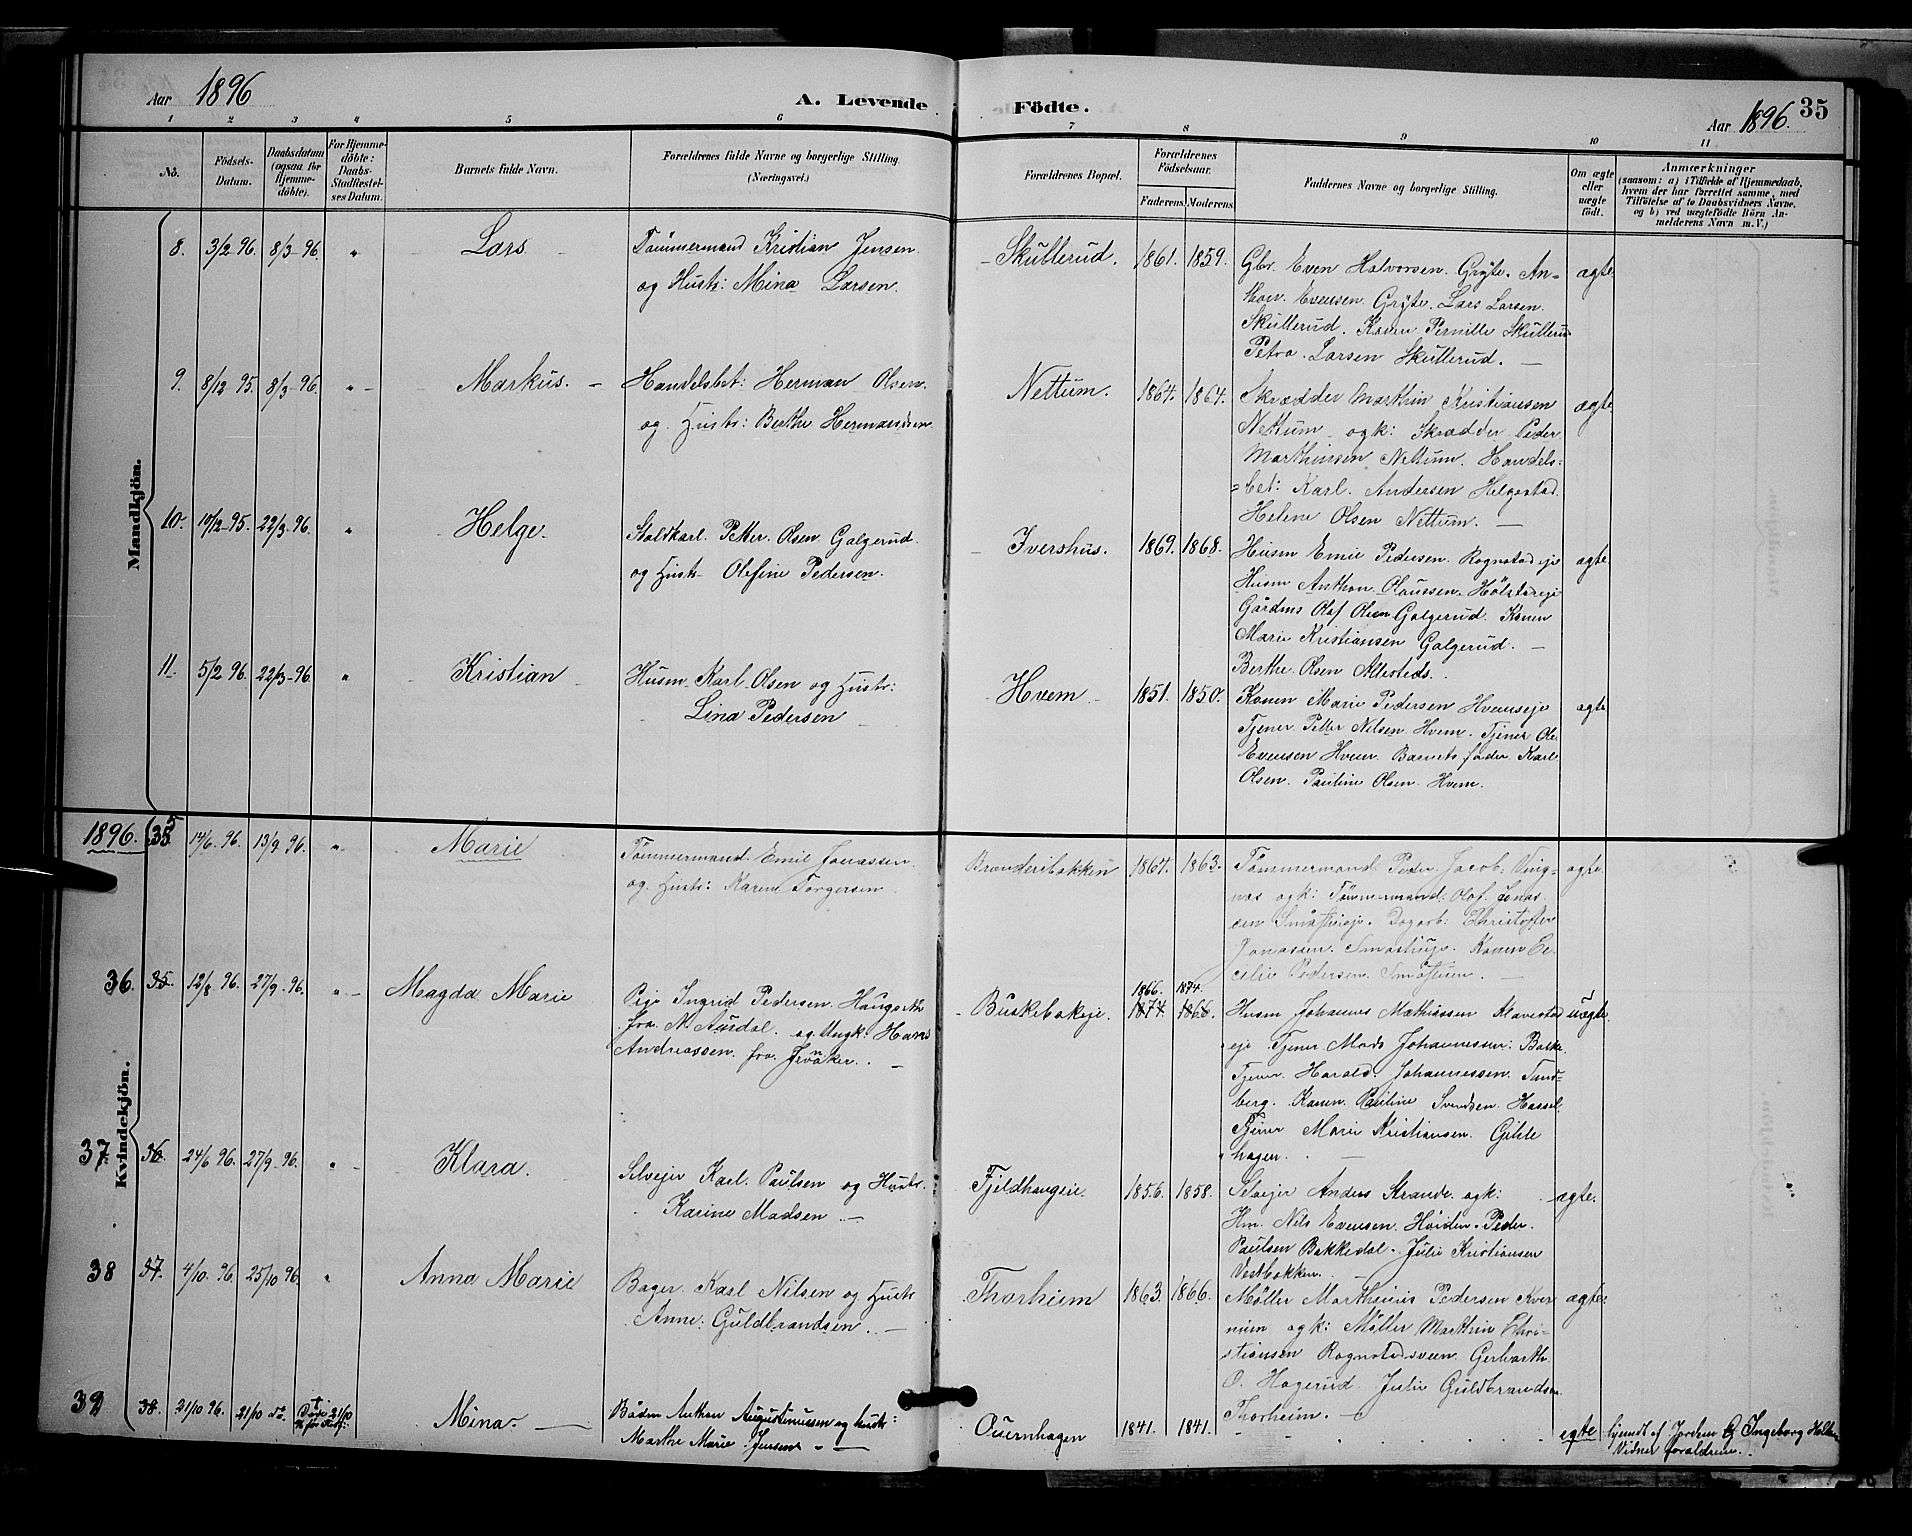 Aar 1896
A. Levende Födte.
Aar 1896. 35
1 2 3 4 5 6 7 8 9 10 11
No.
Födsels-Datum.
Daabsdatum (ogsaa for Hjemmedöbte).
For Hjemmedöbte: Daabs-Stadfæstelses Datum.
Barnets fulde Navn.
Forældrenes fulde Navne og borgerlige Stilling.
(Næringsvei.)
Forældrenes Bopæl.
Forældrenes Födselsaar.
Faderens. Moderens.
Faddernes Navne og borgerlige Stilling.
Om ægte eller uægte födt.
Anmærkninger
(saasom: a) i Tilfælde af Hjemmedaab,
hvem der har forrettet samme, med
Tilföielse af to Daabsvidners Navne,
og b) ved uægtefödte Börn Anmelderens Navn m. V.)
Mandkjön.
8. 3/2 96. 8/3 96. " Lars
Tömmermand Kristian Jensen
og Hustr: Mina Larsen.
Skullerud. 1861. 1859.
Gbr. Even Halvorsen. Gryte. An-
thon. Evensen. Gryte. Lars Larsen.
Skullerud. Konen Pernille Skullerud
Petra. Larsen Skullerud. —
ægte
9. 8/12 95. 8/3 96. " Markus.
Handelsbet: Herman Olsen.
og Hustr: Berthe Hermansen
Nettum. 1864. 1864.
Skrædder Marthin Kristiansen
Nettum ogk: Skrædder Peder
Marthinsen Nettum. Handels:
=bet: Karl. Andersen Helgestad.
Helene Olsen Nettum. —
ægte
10. 10/12 95. 22/3 96. " Helge.
Staldkarl. Petter. Olsen Galgerud.
og Hustr Olefine Pedersen.
Ivershus. 1869. 1868.
Husm Emil Pedersen. Rognstad eje
Husm Anthon Olaussen. Hölstadeje
Gårdms Olaf Olsen Galgerud. Konen
Marie Kristiansen Galgerud. —
Berthe. Olsen
ægte
11. 5/2 96. 22/3 96. " Kristian
Husm Karl. Olsen og Hustr:
Lina Pedersen
Hvem 1851. 1850.
Konen Marie Pedersen Hvemseje
Tjener Petter Nilsen Hvem. Tjener Ole
Evensen Hvem. Barnets fader Karl
Olsen. Pauline Olsen. Hvem.
ægte
Kvindekjön.
1896. 35 14/6 96. 13/9 96. " Marie
Tömmermand. Emil Jonassen
og. Hustr: Karen Torgersen
1864. 1863.
Tömmermand Peder Jacob. Ting-
næs ogk: Tömmermand Olaf Jonas-
sen Dagarb: Christoffer
Jonassen. Konen Ce-
celie Pedersen
ægte
36. 35. 12/8 96. 27/9 96. " Magda Marie
Pige Ingrid Pedersen.
fra N. Aurdal. og Ungk: Hans
Andreassen. fra —
1866. 1874.
1874 1866.
Husm Johannes Mathiassen
eje Tjener Mads Johannessen:
Tjener. Harald. Johannessen. Sand-
berg. Konen Pauline Svendsen. Hassel
Tjener Marie Kristiansen. Gilde
hagen. —
uægte.
37. 36. 24/6 96. 27/9 96. " Klara.
Selvejer Karl. Paulsen og Hustr:
Karine Madsen. —
Fjeldhaugeie. 1856. 1858.
Selvejer Anders Strande. ogk:
Hm. Nils Evensen. Peder.
Paulsen Bakkedal. Julie Kristiansen
Vestbakken. —
ægte.
38 37. 4/10 96. 25/10 96. " Anna Marie
Bager. Karl Nilsen og Hustr
Anne: Guldbrandsen. —
Thorheim 1863. 1866.
Möller Marthinus Pedersen Kver-
num ogk: Möller Marthin Chri-
stiansen Rognstadsveen. Gerharth
O. Hagerud. Julie Guldbrandsen
Thorheim. —
ægte.
39 38. 21/10 96. 21/10 do. Mina.
Anthon Augustinussen og hustr:
Marthe Marie Jensen. —
Quernhagen 1841. 1841.
ægte
hjemdt af Jordem G Ingeborg
Vidner forældrene.